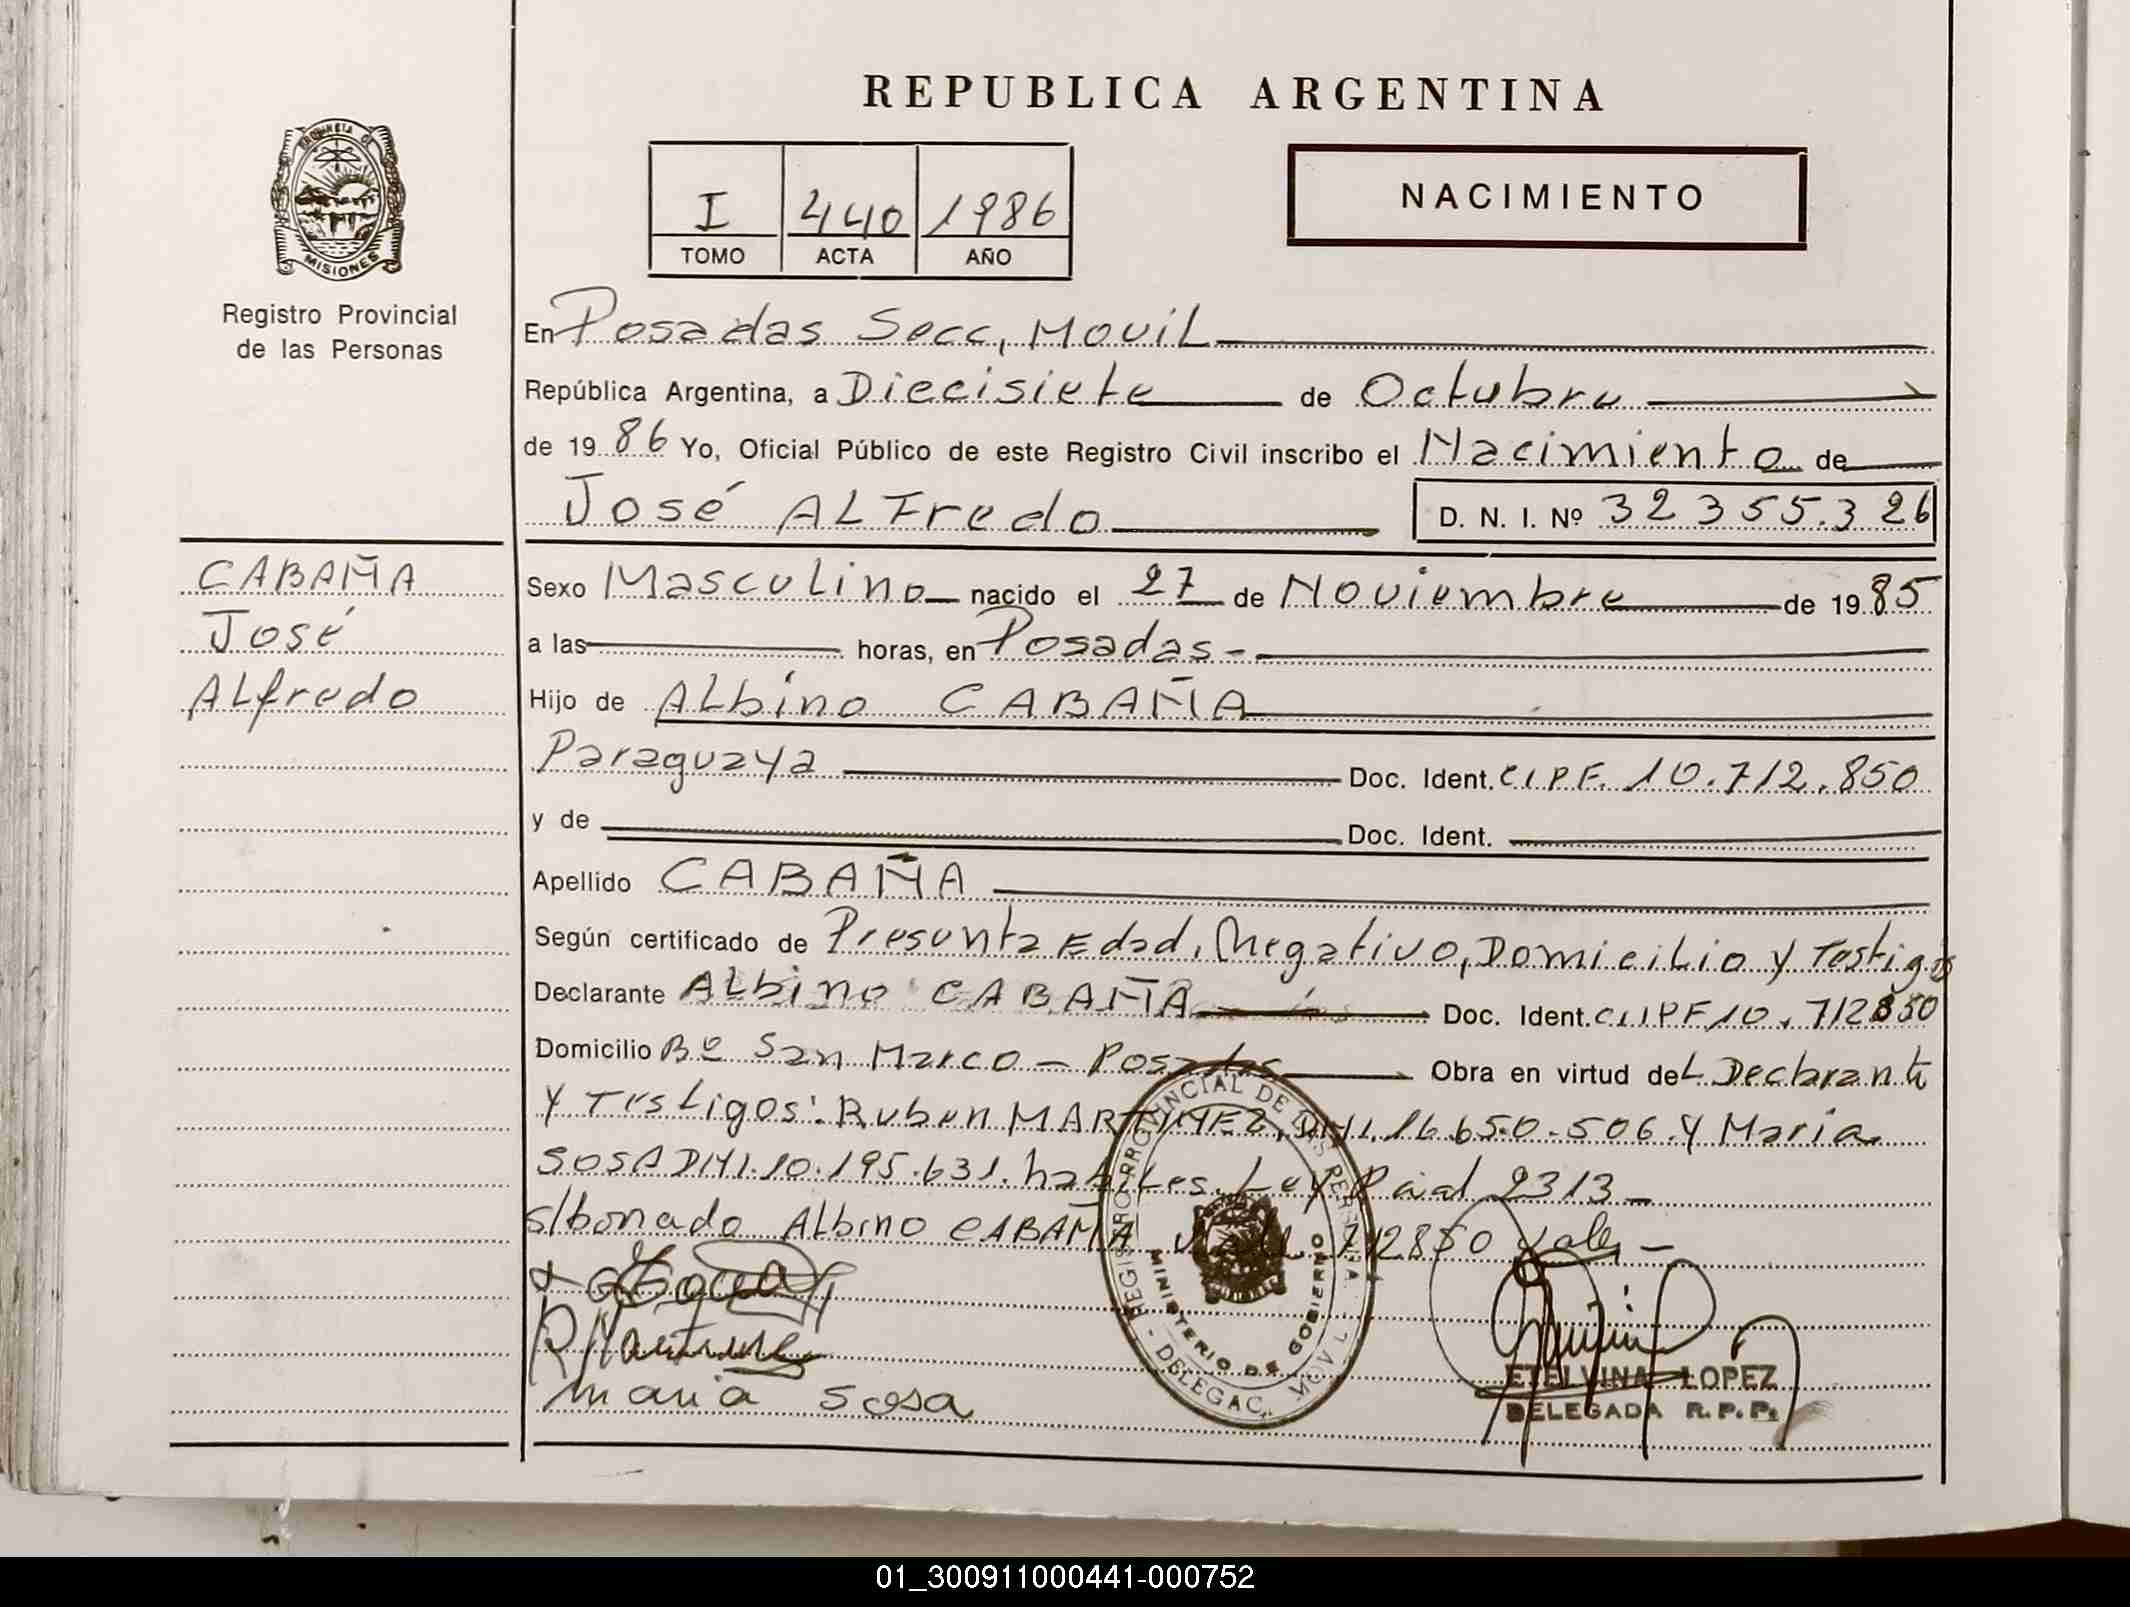 REPUBLICA ARGENTINA
PROVINCIA DE
MISIONES
Registro Provincial
de las Personas
I 440 1986
TOMO ACTA AÑO
NACIMIENTO
En Posadas Secc, Movil
República Argentina, a Diecisiete de Octubre
de 19 86 Yo, Oficial Público de este Registro Civil inscribo el Nacimiento de
José Alfredo D. N. I. Nº 32355.326
CABAÑA
José
Alfredo
Sexo Masculino nacido el 27 de Noviembre de 19 85
a las horas, en Posadas -
Hijo de Albino CABAÑA
Paraguaya Doc. Ident. CIPF. 10.712.850
y de Doc. Ident.
Apellido CABAÑA
Según certificado de Presunta Edad, Negativo, Domicilio y Testigos
Declarante Albino CABAÑA Doc. Ident. C.IPF10.712850
Domicilio Bº San Marco - Posadas Obra en virtud del Declarante
y Testigos: Ruben MARTINEZ, DNI. 16.650.506 y Maria
SOSA DNI.10.195.631. habiles. Ley Pcial 2313 -
s/bonado Albino CABAÑA 712850 Vale. -
R Martinez
maria sosa
REGISTRO PROVINCIAL DE LAS PERSONAS
MINISTERIO DE GOBIERNO
- DELEGAC. MOVIL -
ETELVINA LOPEZ
DELEGADA R.P.P.
01_300911000441-000752